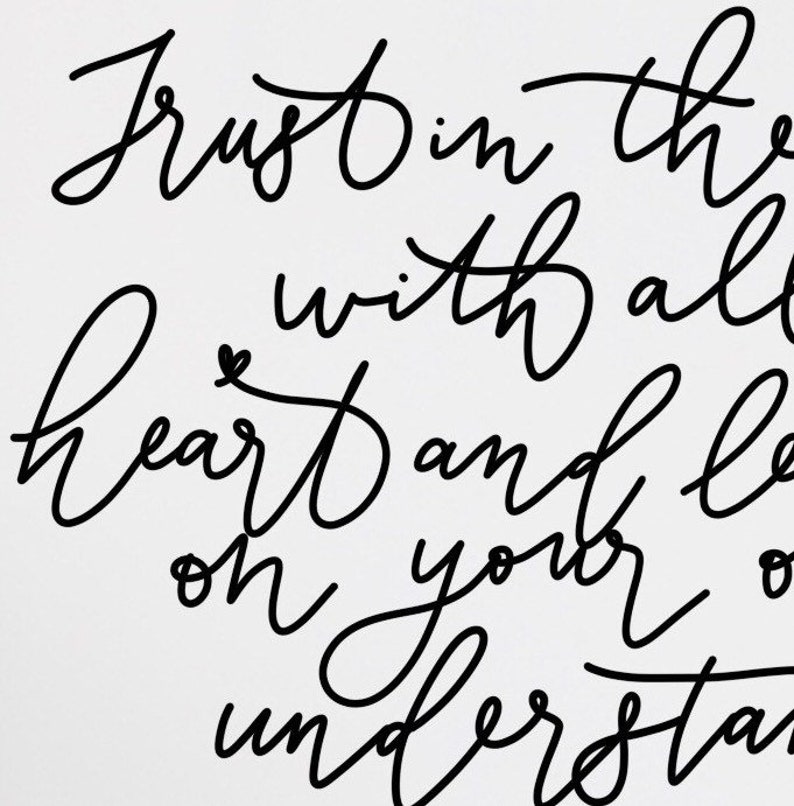 Trust in the
with all
heart and le
on your o
understan